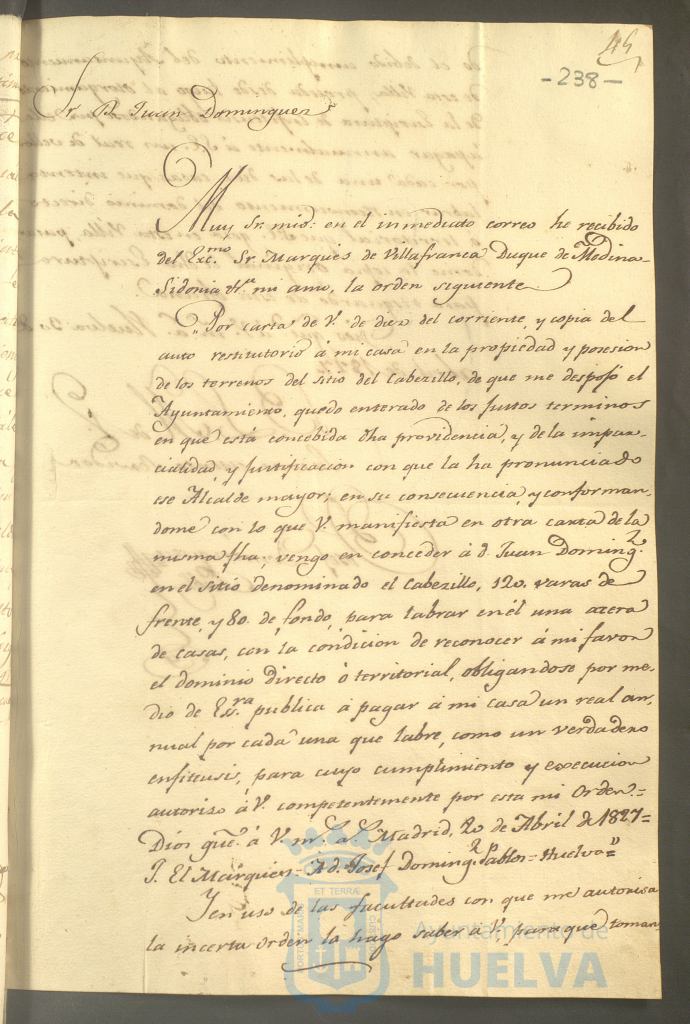 45
-238-
Sr. Dn. Juan Dominguez
Muy Sr. mio: en el inmediato correo he recibido
del Excmo. Sr. Marques de Villafranca Duque de Medina-
Sidonia &ª. mi amo, la orden siguiente
"Por carta de V. de diez del corriente, y copia del
auto restitutorio á mi casa en la propiedad y posesion
de los terrenos del sitio del Cabezillo, de que me despojó el
Ayuntamiento, quedo enterado de los justos terminos
en que está concebida dha providencia, y de la impar-
cialidad, y justificacion con que la ha pronunciado
ese Alcalde mayor; en su consecuencia, y conforman-
dome con lo que V. manifiesta en otra carta de la
misma fha, vengo en conceder á d. Juan Doming.z
en el sitio denominado el Cabezillo, 120. varas de
frente, y 80. de fondo, para labrar en él una acera
de casas, con la condicion de reconocer á mi favor
el dominio directo ó territorial, obligandose por me-
dio de Essra. publica á pagar á mi casa un real an-
nual por cada una que labre, como un verdadero
enfiteusis, para cuyo cumplimiento y execucion
autorizo á V. competentemente por esta mi Orden.=
Dios gue. á V. ms. as. Madrid, 20 de Abril de 1827=
El Marques= A d. Josef Doming.z Pablos= Huelva="
Y en uso de las facultades con que me autorisa
la incerta orden la hago saber a V. para que toman
PORTUS MARIS ET TERRÆ CUSTODIA
Ayuntamiento de
HUELVA